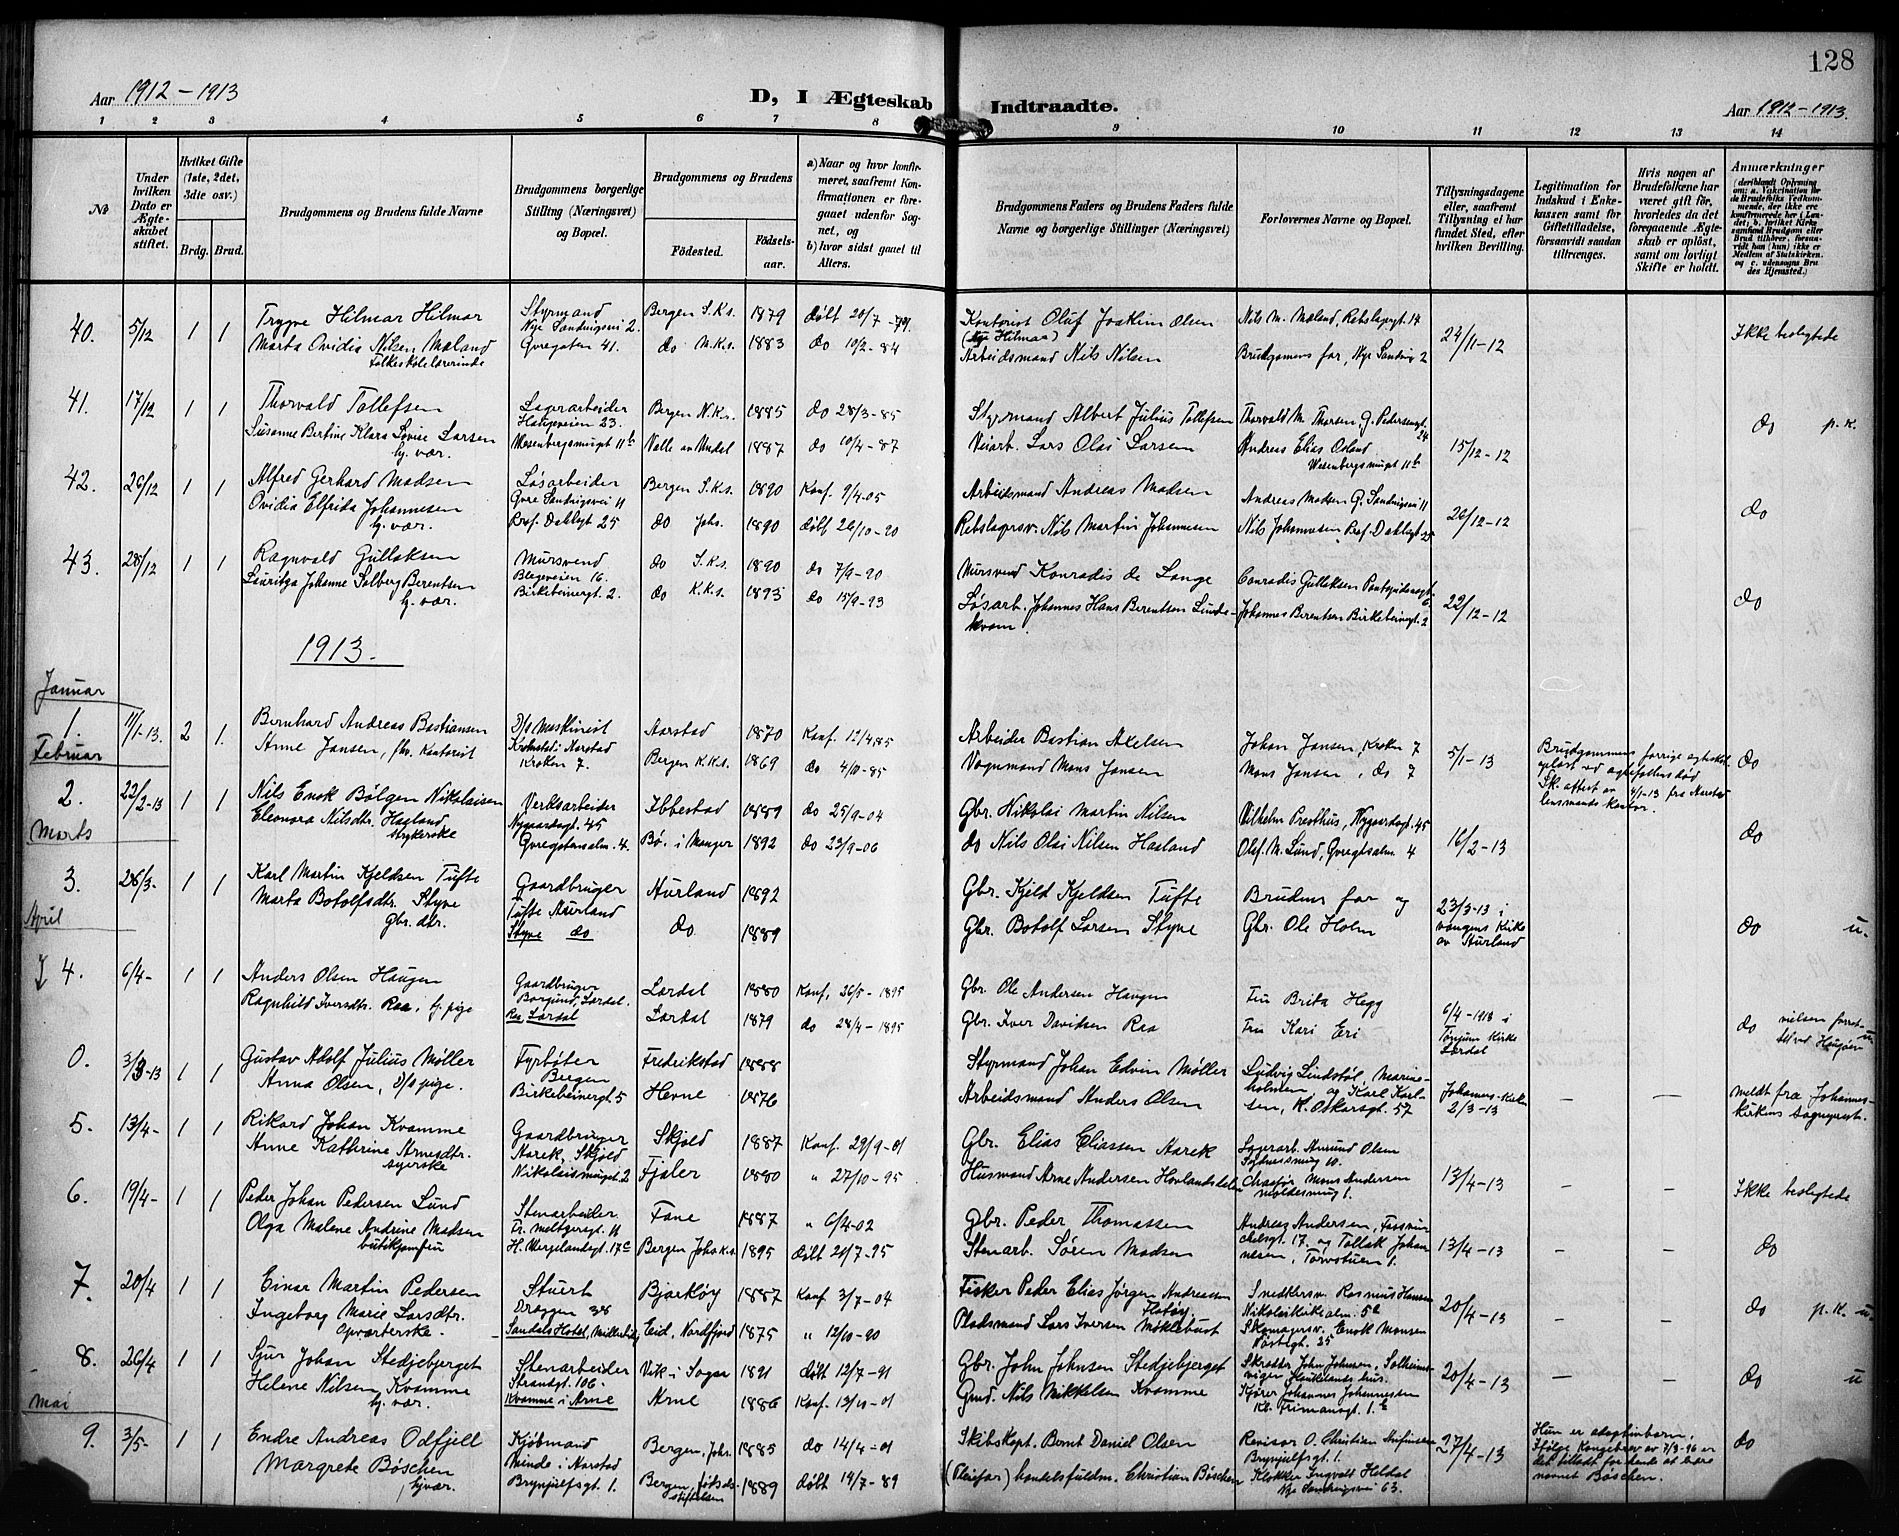 128
Aar 1912-1913
D, I Ægteskab Indtraadte.
Aar 1912-1913.
1 2 3 4 5 6 7 8 9 10 11 12 13 14
№
Under hvilken Dato er Ægteskabet stiftet.
Hvilket Gifte (1ste, 2det, 3die osv.)
Brdg. Brud.
Brudgommens og Brudens fulde Navne
Brudgommens borgerlige Stilling (Næringsvei) og Bopæl.
Brudgommens og Brudens
Födested.
Födselsaar.
a) Naar og hvor konfirmeret, saafremt Konfirmationen er foregaaet udenfor Sognet, og
b) hvor sidst gaaet til Alters.
Brudgommens Faders og Brudens Faders fulde Navne og borgerlige Stillinger (Næringsvei)
Forlovernes Navne og Bopæl.
Tillysningsdagene eller, saafremt Tillysning ei har fundet Sted, efter hvilken Bevilling.
Legitimation for Indskud i Enkekassen samt for Giftetilladelse, forsaavidt saadan tiltrænges.
Hvis nogen af Brudefolkene har været gift, hvorledes da det foregaaende Ægteskab er oplöst, samt om lovligt Skifte er holdt.
Anmærkninger
40. 5/12 1 1 Trygve Hilmar Hilmar Styrmand Nye Sandvigsvei 2. Bergen S.K.s. 1879 døbt 20/7-79. Kontorist Oluf Joakim Olsen (Nye Hilmar) Nils M. Mæland, Rebslagergt 14 24/11-12 Ikke beslegtede
Marta Ovidia Nilsen Mæland Folkeskolelærerinde Øvregaten 41. do M.K.s. 1883 do 10/2-84 Arbeidsmand Nils Nilsen Brudgomens far, Nye Sandvig 2
41. 17/12 1 1 Thorvald Tollefsen Lagerarbeider Haugeveien 23. Bergen N.K.s. 1885 do 28/3-85 Styrmand Albert Julius Tollefsen Thorvald M. Thorsen, G. Pedersensgt. 24 15/12-12 do p.k.
Susanne Bertine Klara Lovise Larsen hj. vær. Wesenbergsmugt 11b Valle av Undal 1887 do 10/4-87 Veiarb. Lars Olai Larsen Andreas Elias Osland Wesenbergsmugt 11b
42. 26/12 1 1 Alfred Gerhard Madsen Løsarbeider Øvre Sandvigsvei 11 Bergen S.K.s. 1890 Konf. 9/4-05 Arbeidsmand Andreas Madsen Andreas Madsen G. Sandvigsvei 11 26/12-12 do
Ovidia Elfrida Johannesen hj. vær. Prof. Dahlsgt 25 do Johs. 1890 døbt 26/10-90 Rebslagersv. Nils Martin Johannesen Nils Johannesen, Prof. Dahlsgt 25
43. 28/12 1 1 Ragnvald Gullaksen Mursvend Blegeveien 16. do S.K.s. 1890 do 7/9-90 Mursvend Konradis de Lange Conradis Gullaksen 22/12-12 do
Lauritza Johanne Solberg Berentsen hj. vær. Birkebeinergt. 2. do K.K.s. 1893 do 15/9-93 Løsarb. Johannes Hans Berentsen Lindekvam. Johannes Berentsen Birkebeinergt. 2
1913.
Januar
1. 11/1-13. 2 1. Bernhard Andreas Bastiansen D/s Maskinist Kronstad i Aarstad Aarstad 1870 Konf. 12/4 85 Arbeider Bastian Axelsen Johan Jansen, Kroken 7 5/1-13 Brudgommens forrige egteskab opløst ved egtefællens død Sk. attest av 4/1-13 fra Aarstad lensmands kontor. do
Anne Jansen, fhv. Kontorist Kroken 7. Bergen K.K.s. 1869 do 4/10-85 Vognmand Mons Jansen Mons Jansen, do 7
Februar
2. 22/2-13 1 1 Nils Enok Bølgen Nikolaisen Verksarbeider Nygaardsgt. 45 Ibbestad 1889 do 25/9-04 Gbr. Nikolai Martin Nilsen Vilhelm Presthus, Nygaardsgt. 45 16/2-13 do
Eleonora Nilsdtr. Hagland strykerske Øvregatensalm. 4. Bø i Manger 1892 do 23/9-06 do Nils Olai Nilsen Hagland Olaf. M. Lund, Øvregtsalm. 4
Marts
3. 26/3- 1 1 Karl Martin Kjeldsen Tufte Gaardbruger Tufte Aurland Aurland 1892 Gbr. Kjeld Kjeldsen Tufte Brudens far og 23/3-13 i vangens Kirke av Aurland do u.
Marta Botolfsdtr. Styve Gbr. dtr. Styve do do. 1889 Gbr. Botolf Larsen Styve Gbr. Ole Holm
April
4. 6/4- 1 1 Anders Olsen Haugen Gaardbruger Borgund, Lærdal. Lærdal 1880 Konf. 26/5-1895 Gbr. Ole Andersen Haugen Fru Brita Hegg 6/4-1913 i Tønjum Kirke Lærdal do vielsen forrettet ved Haugøen u
Ragnhild Iversdtr. Raa, tj. pige Raa, Lærdal Lærdal 1879 do 28/4-1895 Gbr. Iver Davidsen Raa Fru Kari Eri
0. 3/3-13 1 1 Gustav Adolf Julius Møller Fyrbøter Bergen Fredrikstad 1888 Styrmand Johan Edvin Møller Ludvig Lindstøl, Marineholmen og Karl Karlsen, K. Oskarsgt. 57 Johannes-Kirken 2/3-13 — — meldt fra Johanneskirkens sogneprest.
Anna Olsen, D/s pige. Birkebeinergt 5 Hevne 1876 Arbeidsmand Anders Olsen
5. 13/4- 1 1 Rikard Johan Kvamme Gaardbruger Aarek, Skjold Skjold 1887 Konf. 29/9-01 Gbr. Elias Eliassen Aarek Lagerarb. Amund Olsen Sydnessmug 10. 13/4-13 — —
Anne Katherine Arnesdtr. syerske Nikolaismuget. 2 Fjaler 1880 " 27/10-95 Husmand Arne Andersen Hovlandsdalen Chaufør Mons Andersen Moldesmug 1. Ikke beslegtede
6. 19/4- 1 1 Peder Johan Pedersen Lund Stenarbeider Fr. Meltzersgt. 11 Fane 1887 " 6/4-02 Gbr. Peder Thomassen Andreas Andersen, 17. og Tollak Johannesen, 1. 13/4-13 — — do
Olga Malene Andrine Madsen butikjomfru H. Wergelandsgt. 17c Bergen Johs k.s. 1895 døbt 20/7-95 Stenarb. Søren Madsen
7. 20/4 1 1 Einar Martin Pedersen Stuert Dræggen 38 Bjarkøy 1887 Konf 3/7-04 Fisker Peder Elias Jørgen Andreassen Flatøy Snedkersv. Rasmus Hansen Nikolaikirkealm. 5a 20/4-13 — — do p.k. u.
Ingeborg Marie Larsdtr. opvarterske. Sandals Hotel, Eid, Nordfjord 1875 " 12/10-90 Pladsmand Lars Iversen Møklebust Skomagersv. Enok Monsen 25
8. 26/4 1 1 Sjur Johan Stedjebjerget Stenarbeider Strandgt. 106. Vik i Sogn 1891 døbt 12/7-91 Gbr. John Johnsen Stedjebjerget Skredder John Johnsen, Solheimsvigen Haukelands hus. 20/4-13 — — do u
Helene Nilsen Kvamme hj. vær. Kvamme i Arne Arne 1886 Konf. 13/10-01 Grmd. Nils Mikkelsen Kvamme Kjører Johannes Johannessen
Mai
9. 3/5- 1 1 Endre Andreas Odfjell Kjøbmand Minde i Aarstad Bergen, Johs. 1885 do 14/4-01 Skibskapt. Bernt Daniel Olsen Revisor O. Christian Brynjulfsgt. 1. 27/4-13 Hun er adoptivbarn. Ifølge Kongebrev av 7/3-96 er det tilladt for hende at bære navnet Bøschen. do
Margrete Bøschen hjvær. Brynjulfsgt. 1. Bergen, fødselsstiftelsen 1889 døbt 14/7-89 (Pleiefar) handelsfuldm. Christian Bøschen Klokker Ingvald Heldal Nye Sandvigsvei 63.